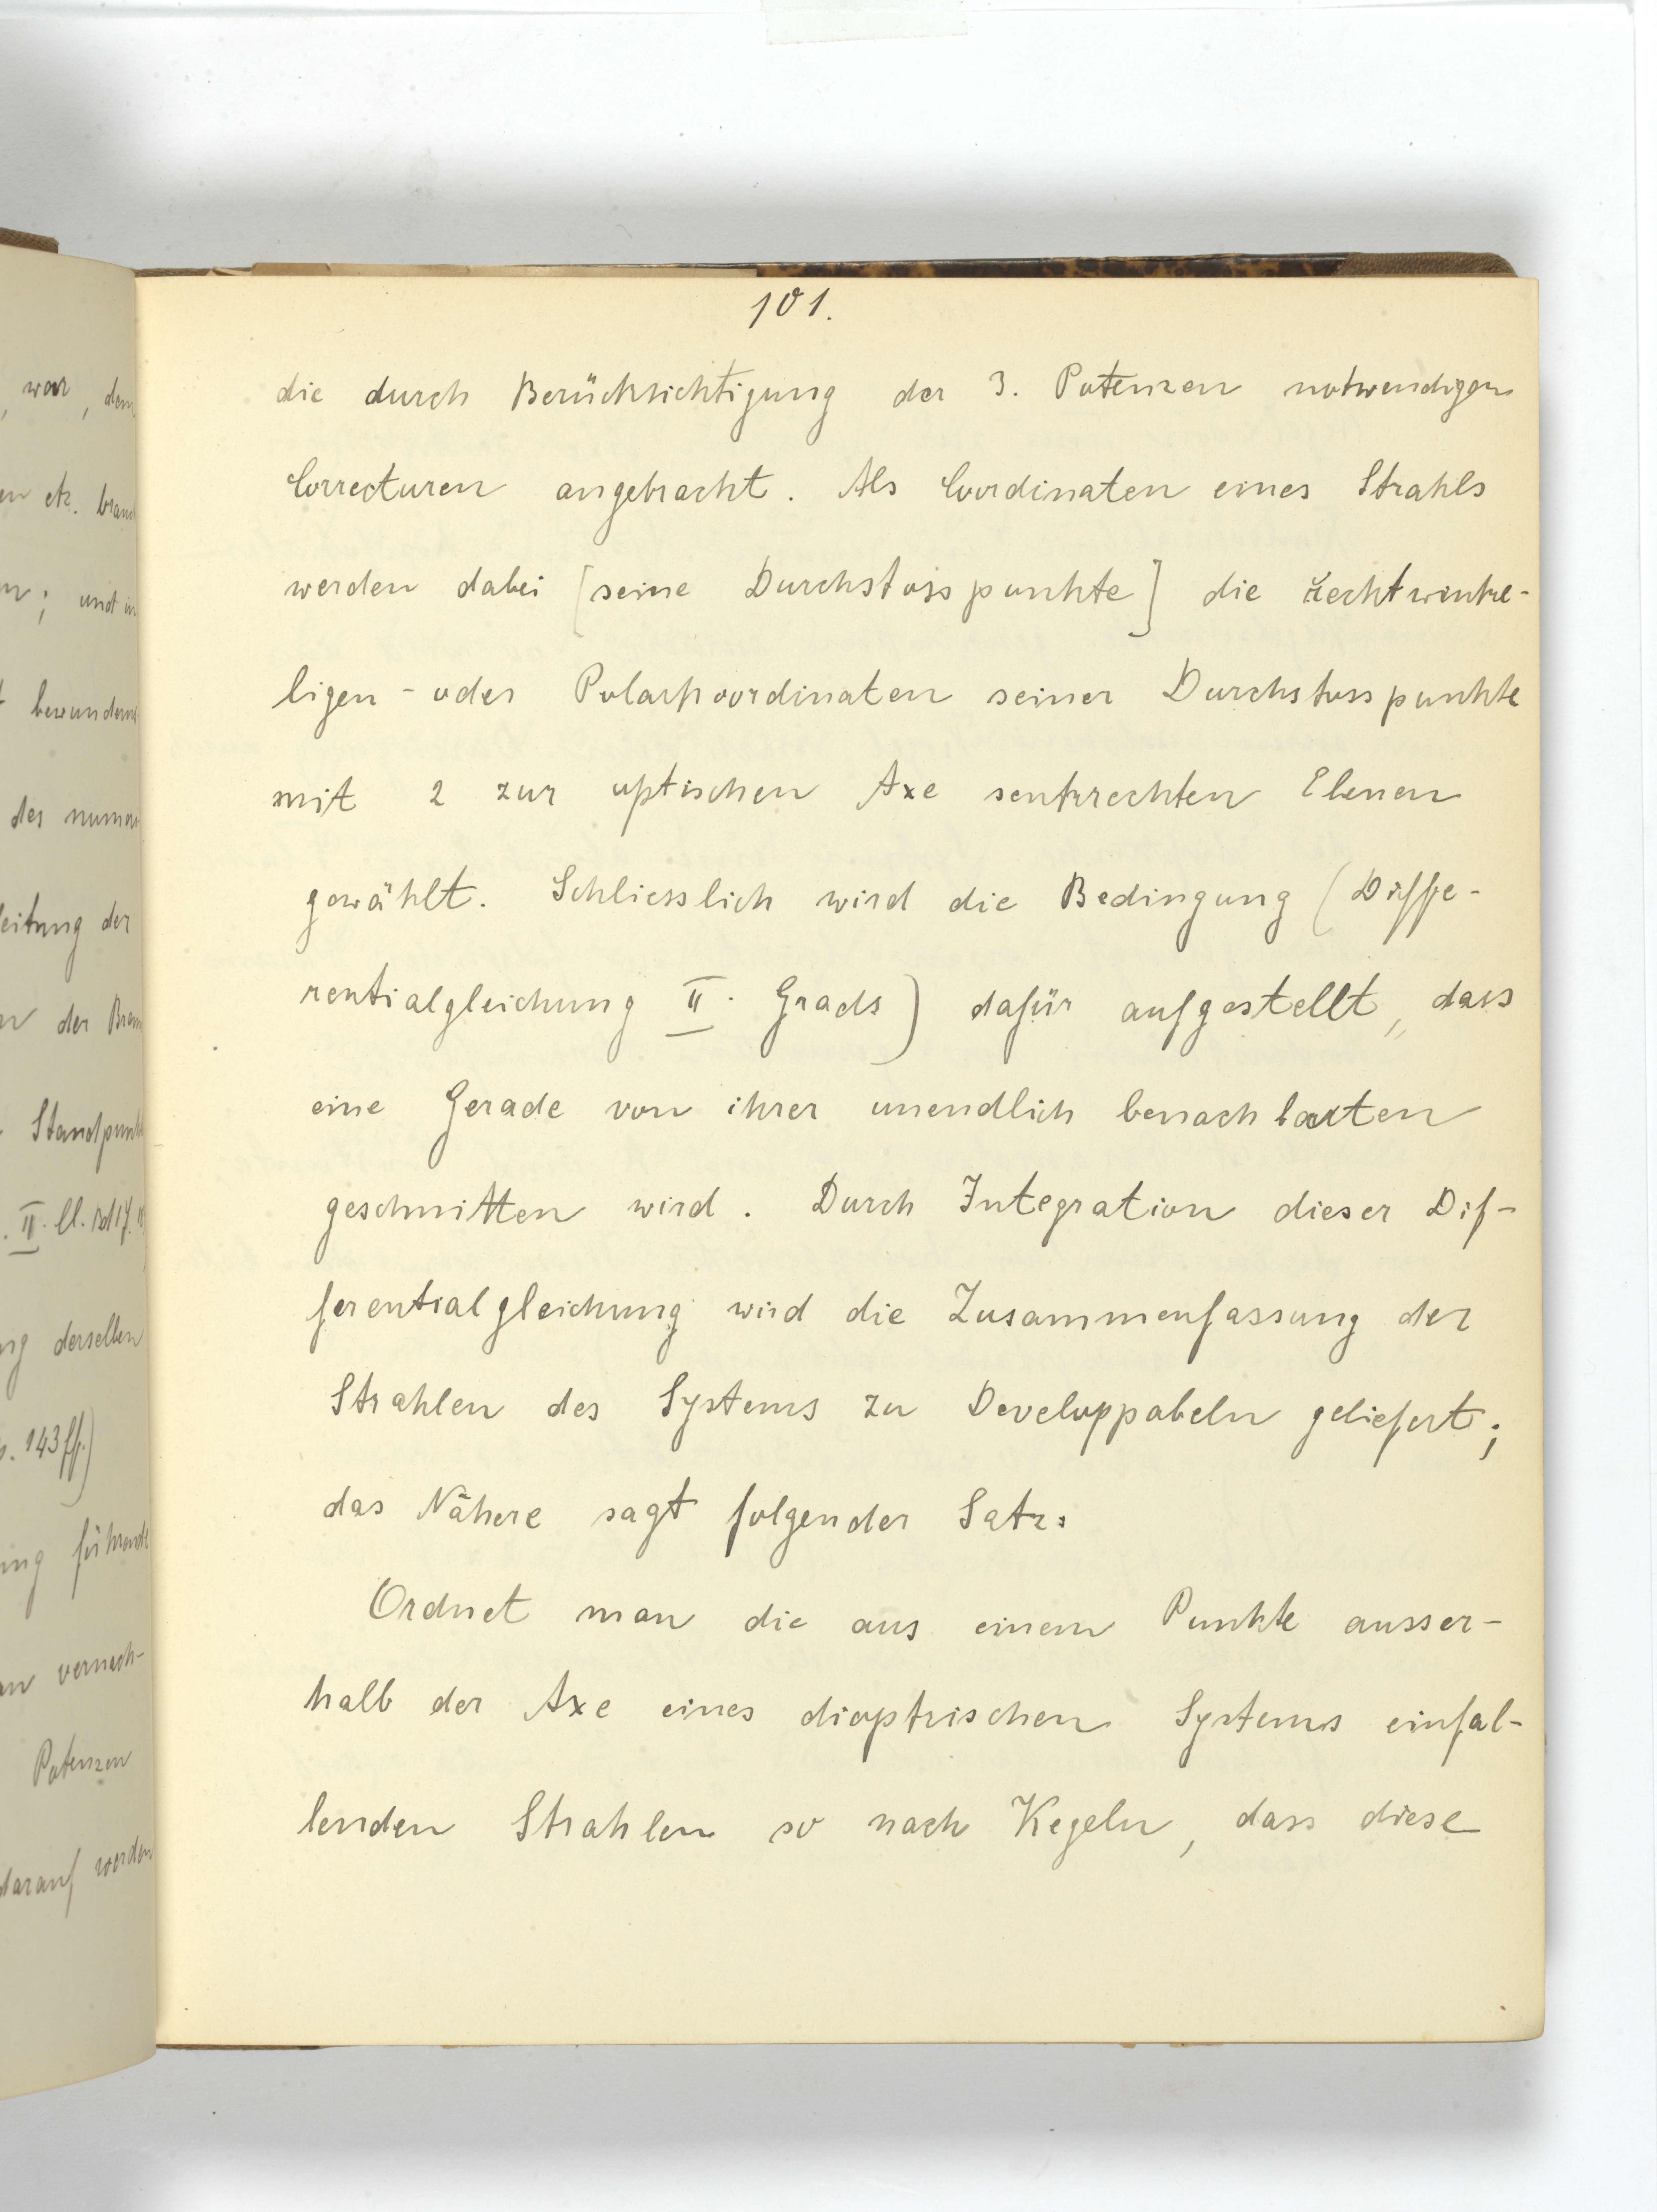 101.
die durch Berücksichtigung der 3. Potenzen notwendigen
Correcturen angebracht. Als Coordinaten eines Strahls
werden dabei [seine Durchstosspunkte] die rechtwinke-
ligen - oder Polarkoordinaten seiner Durchstosspunkte
mit 2 zur optischen Axe senkrechten Ebenen
gewählt. Schliesslich wird die Bedingung (Diffe-
rentialgleichung II. Grads) dafür aufgestellt, dass
eine Gerade von ihrer unendlich benachbarten
geschnitten wird. Durch Integration dieser Dif-
ferentialgleichung wird die Zusammenfassung der
Strahlen des Systems zu Developpabeln geliefert;
das Nähere sagt folgender Satz:
Ordnet man die aus einem Punkte ausser-
halb der Axe eines dioptrischen Systems einfal-
lenden Strahlen so nach Kegeln, dass diese